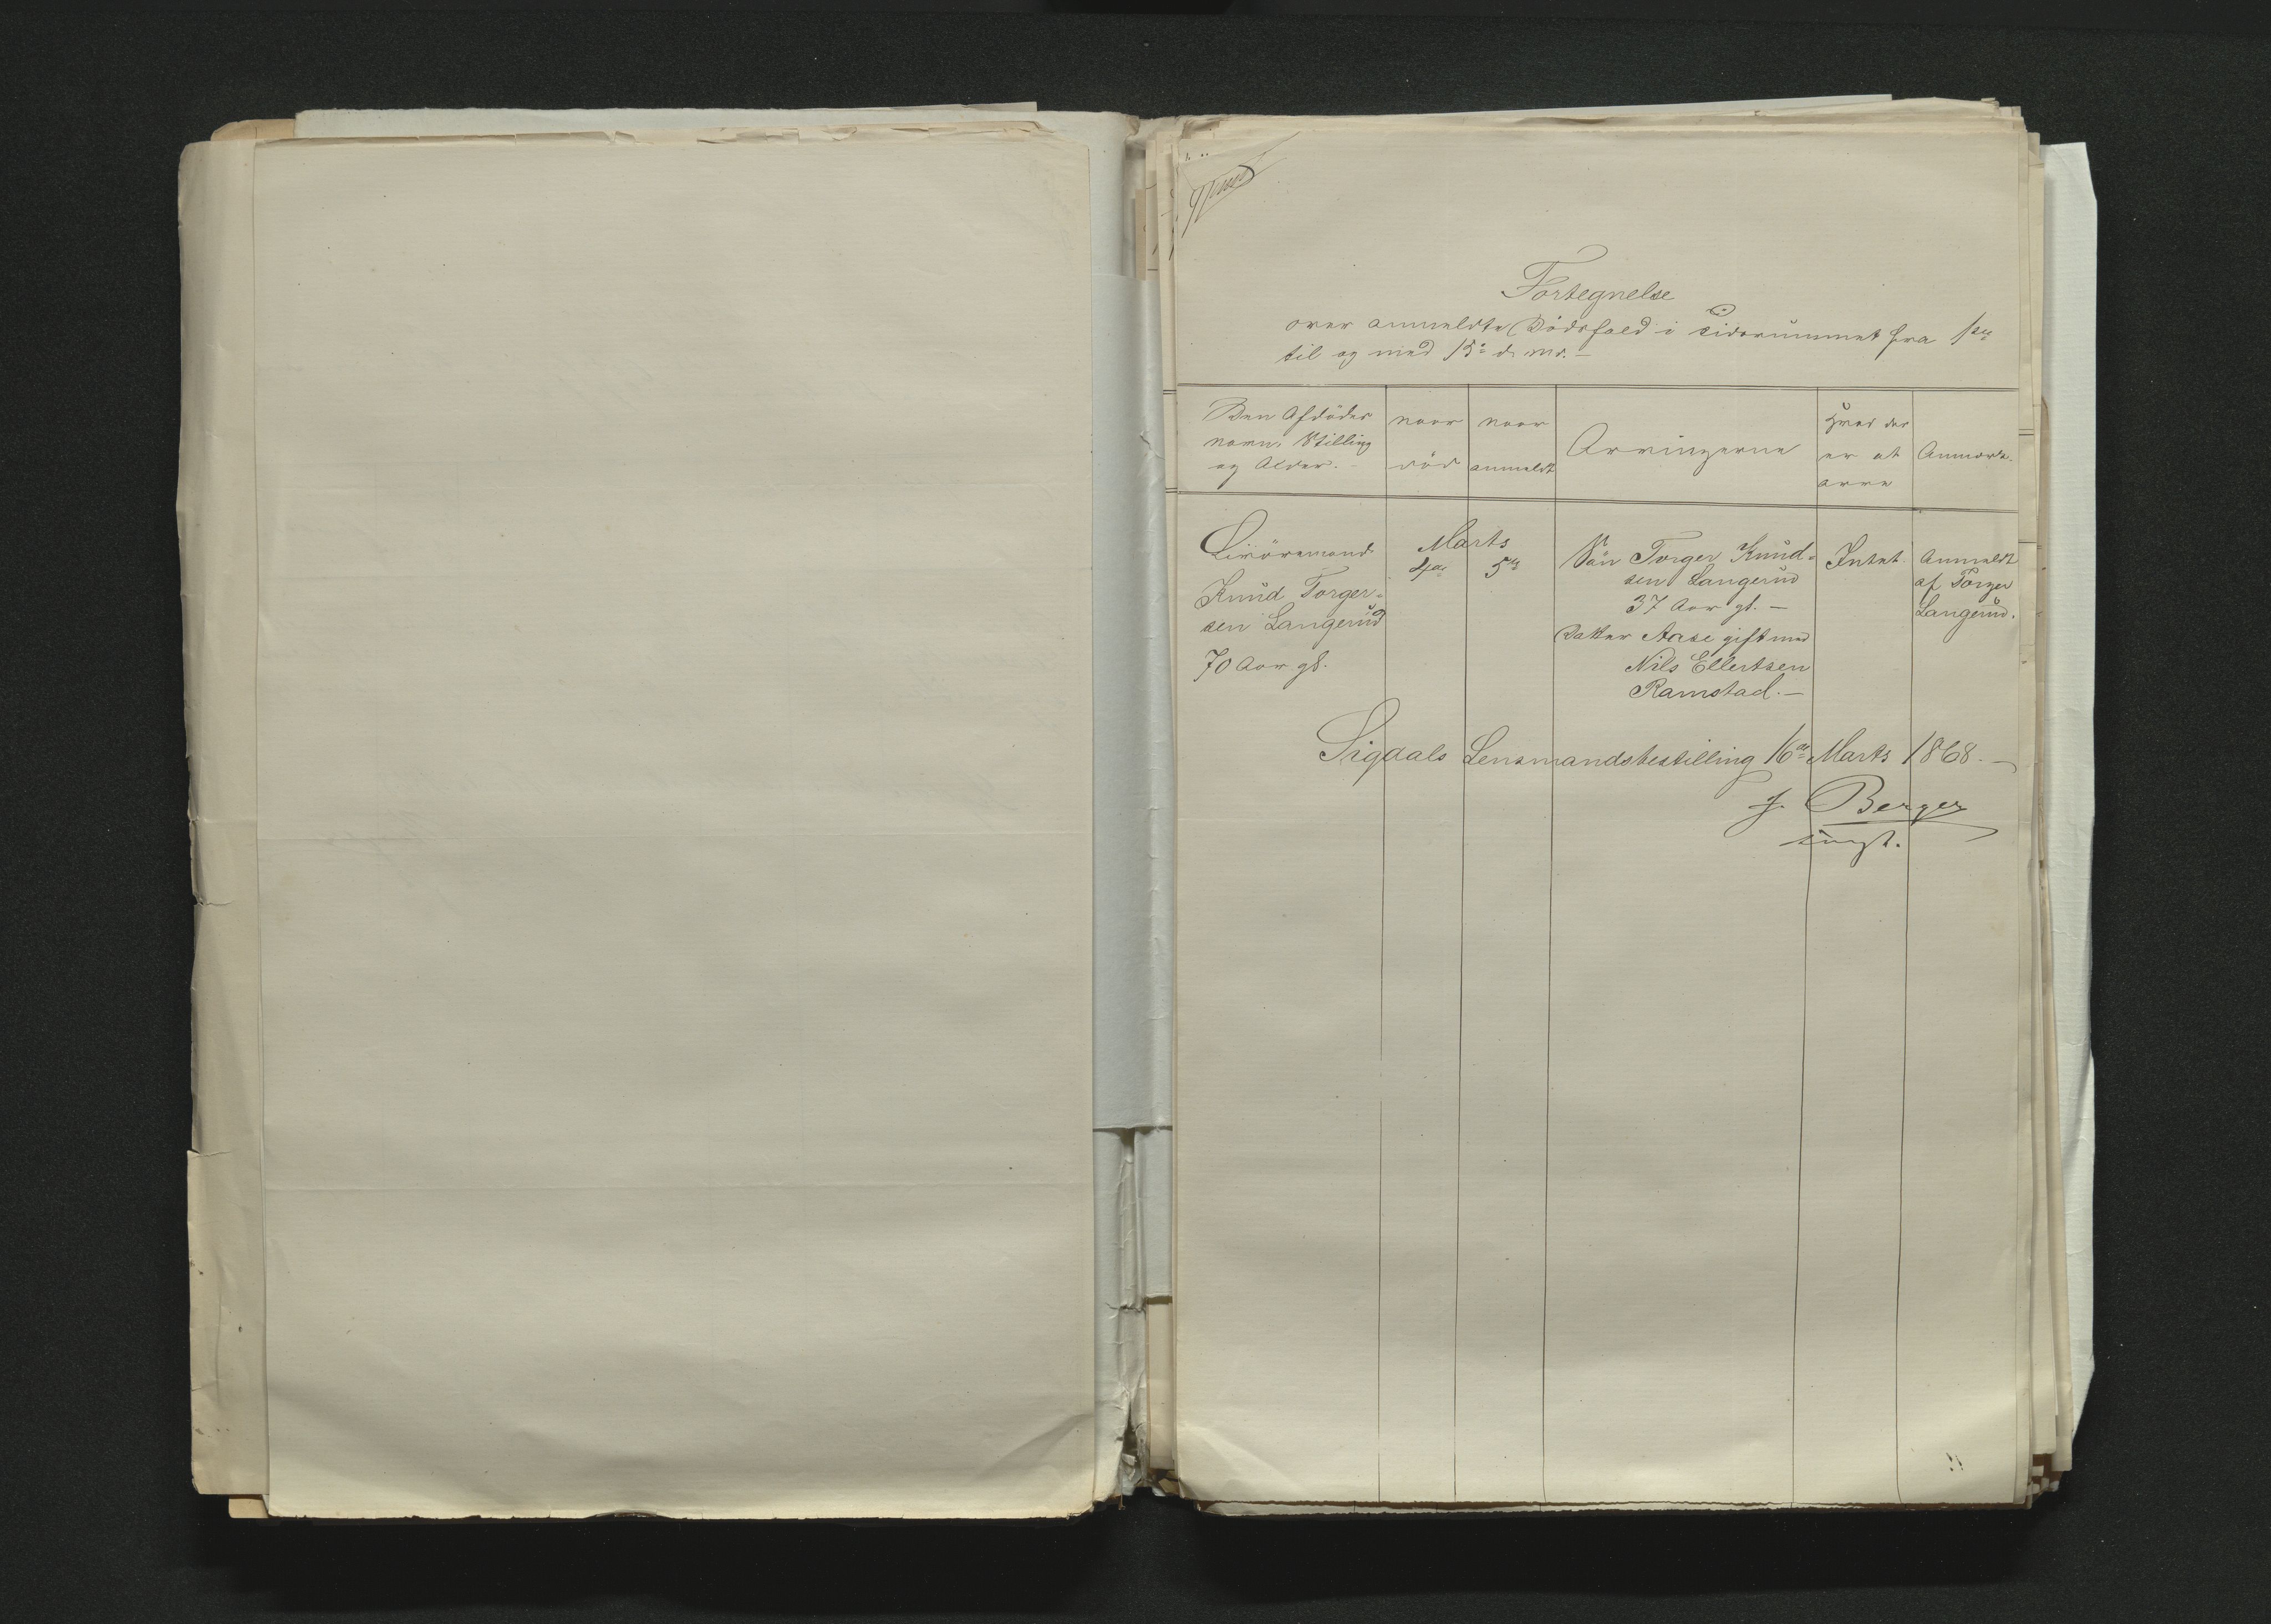 Fortegnelse
over anmeldte Dödsfald i Tidsrummet fra 1ste
til og med 15de d. Md. –
Den Afdödes
Navn, Stilling
og Alder. –
naar
död
naar
anmeldt
Arvingerne
Hvad der
er at
arve
Anmærkn.
Livöresmand
Knud Torger-
sen Langerud
70 Aar gl.
Marts
4de
5te
Sön Torger Knud-
sen Langerud
37 Aar gl. –
Datter Aase gift med
Nils Ellertsen
Ramstad. –
Intet.
Anmeldt
af Torger
Langerud.
Sigdals Lensmandsbestilling 16de Marts 1868. –
Berger